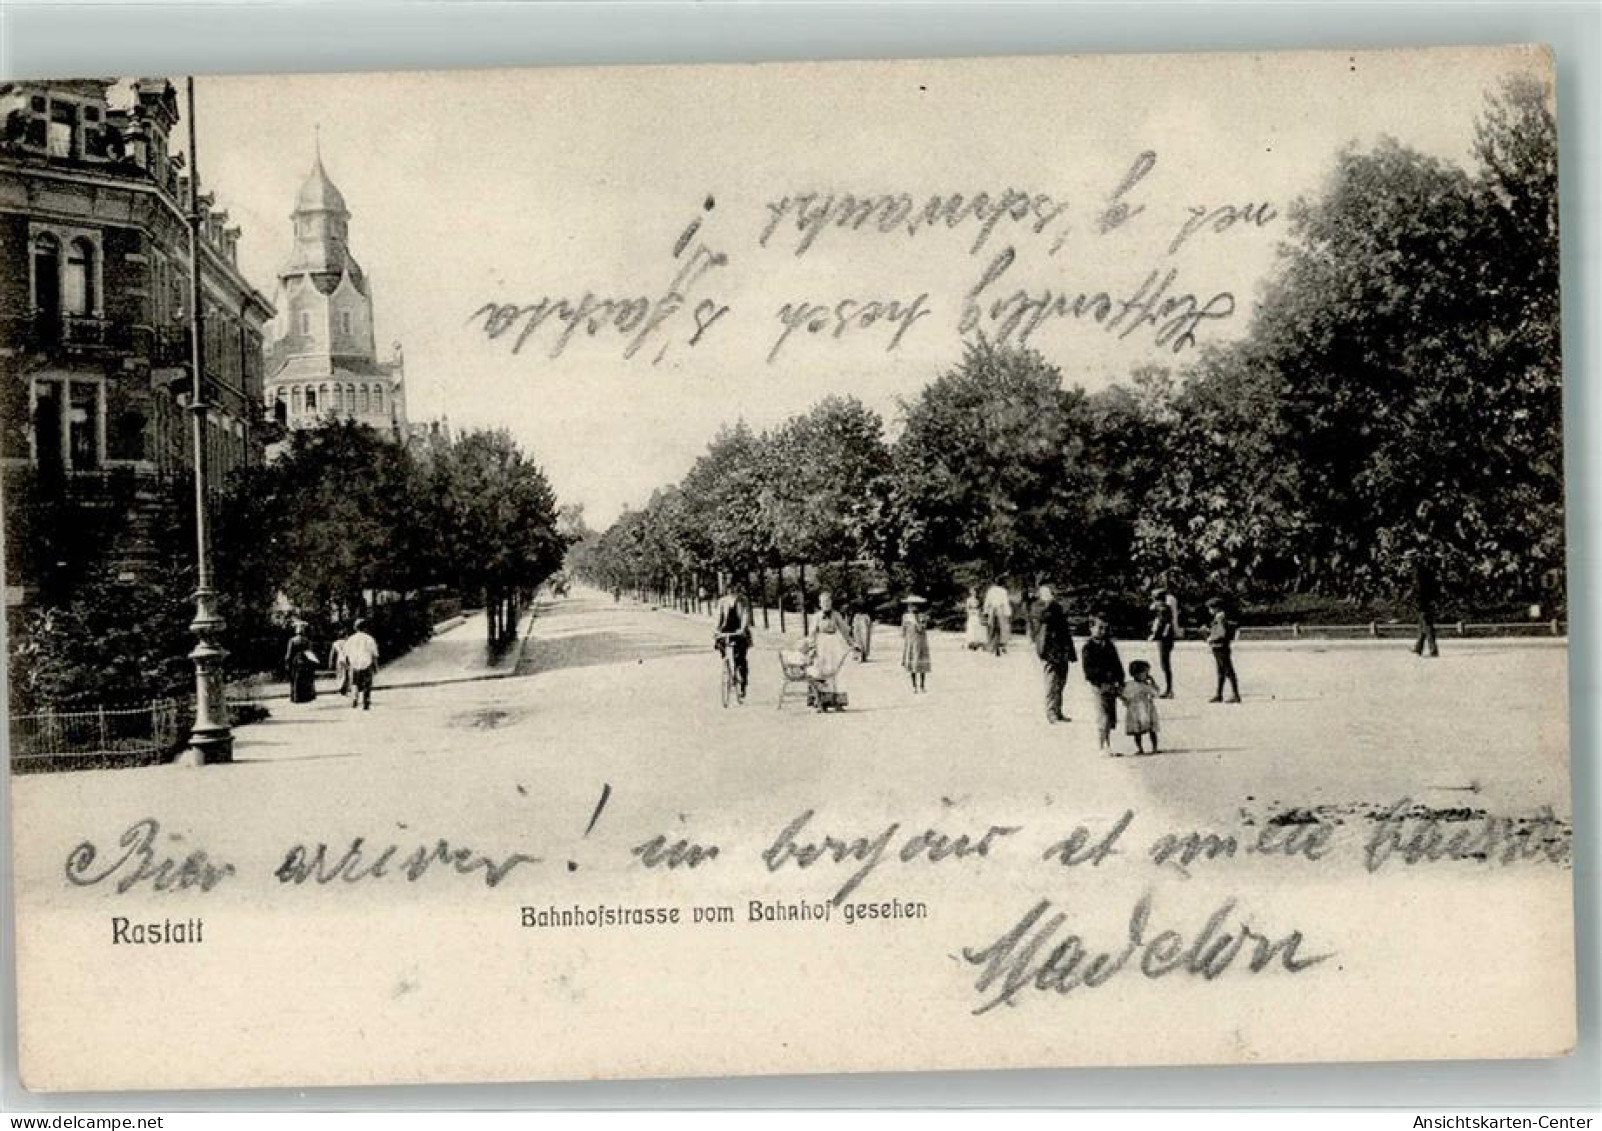 Hoffentlig hesch s'Jachta
net g'schwänzt!
Bien arriver! un bonjour et mille baisers
Madelon
Rastatt
Bahnhofstrasse vom Bahnhof gesehen
delcampe.net
Ansichtskarten-Center